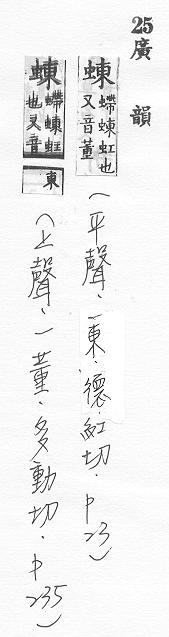 25廣韻
蝀螮蝀虹也又音董
(平聲、一東、德紅切.P23)
蝀螮蝀虹也又音東
(上聲、一董、多動切.P235)